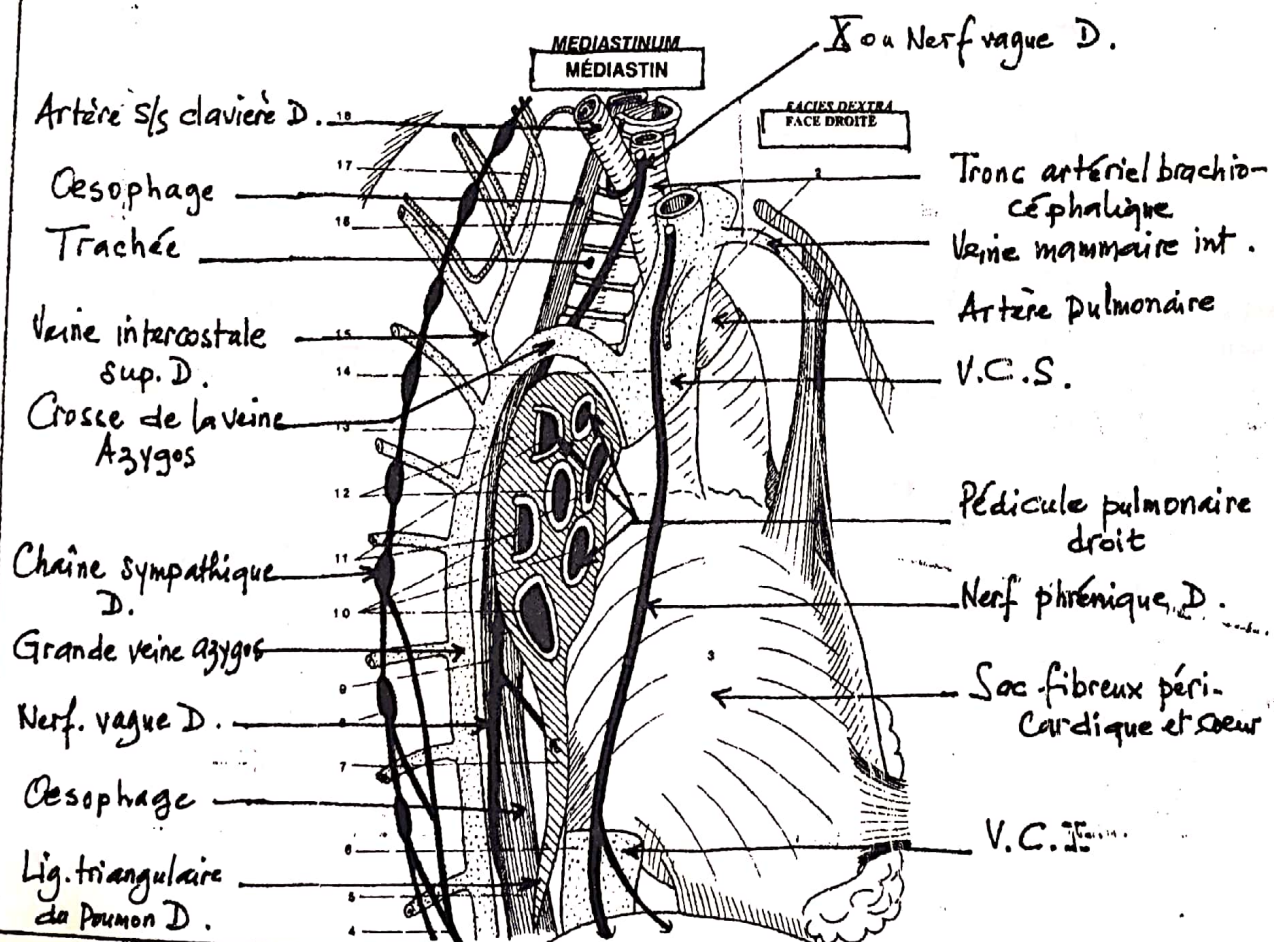 MEDIASTINUM
MÉDIASTIN
X ou Nerf vague D.
FACIES DEXTRA
FACE DROITE
Artère s/s clavière D.
Œsophage
Trachée
Veine intercostale
sup. D.
Crosse de la veine
Azygos
Chaîne sympathique
D.
Grande veine azygos
Nerf. vague D.
Œsophage
Lig. triangulaire
du Poumon D.
18
17
16
15
14
13
12
11
10
9
8
7
6
5
4
2
3
Tronc artériel brachio-
céphalique
Veine mammaire int.
Artère pulmonaire
V.C.S.
Pédicule pulmonaire
droit
Nerf phrénique D.
Sac fibreux péri-
cardique et coeur
V.C.I